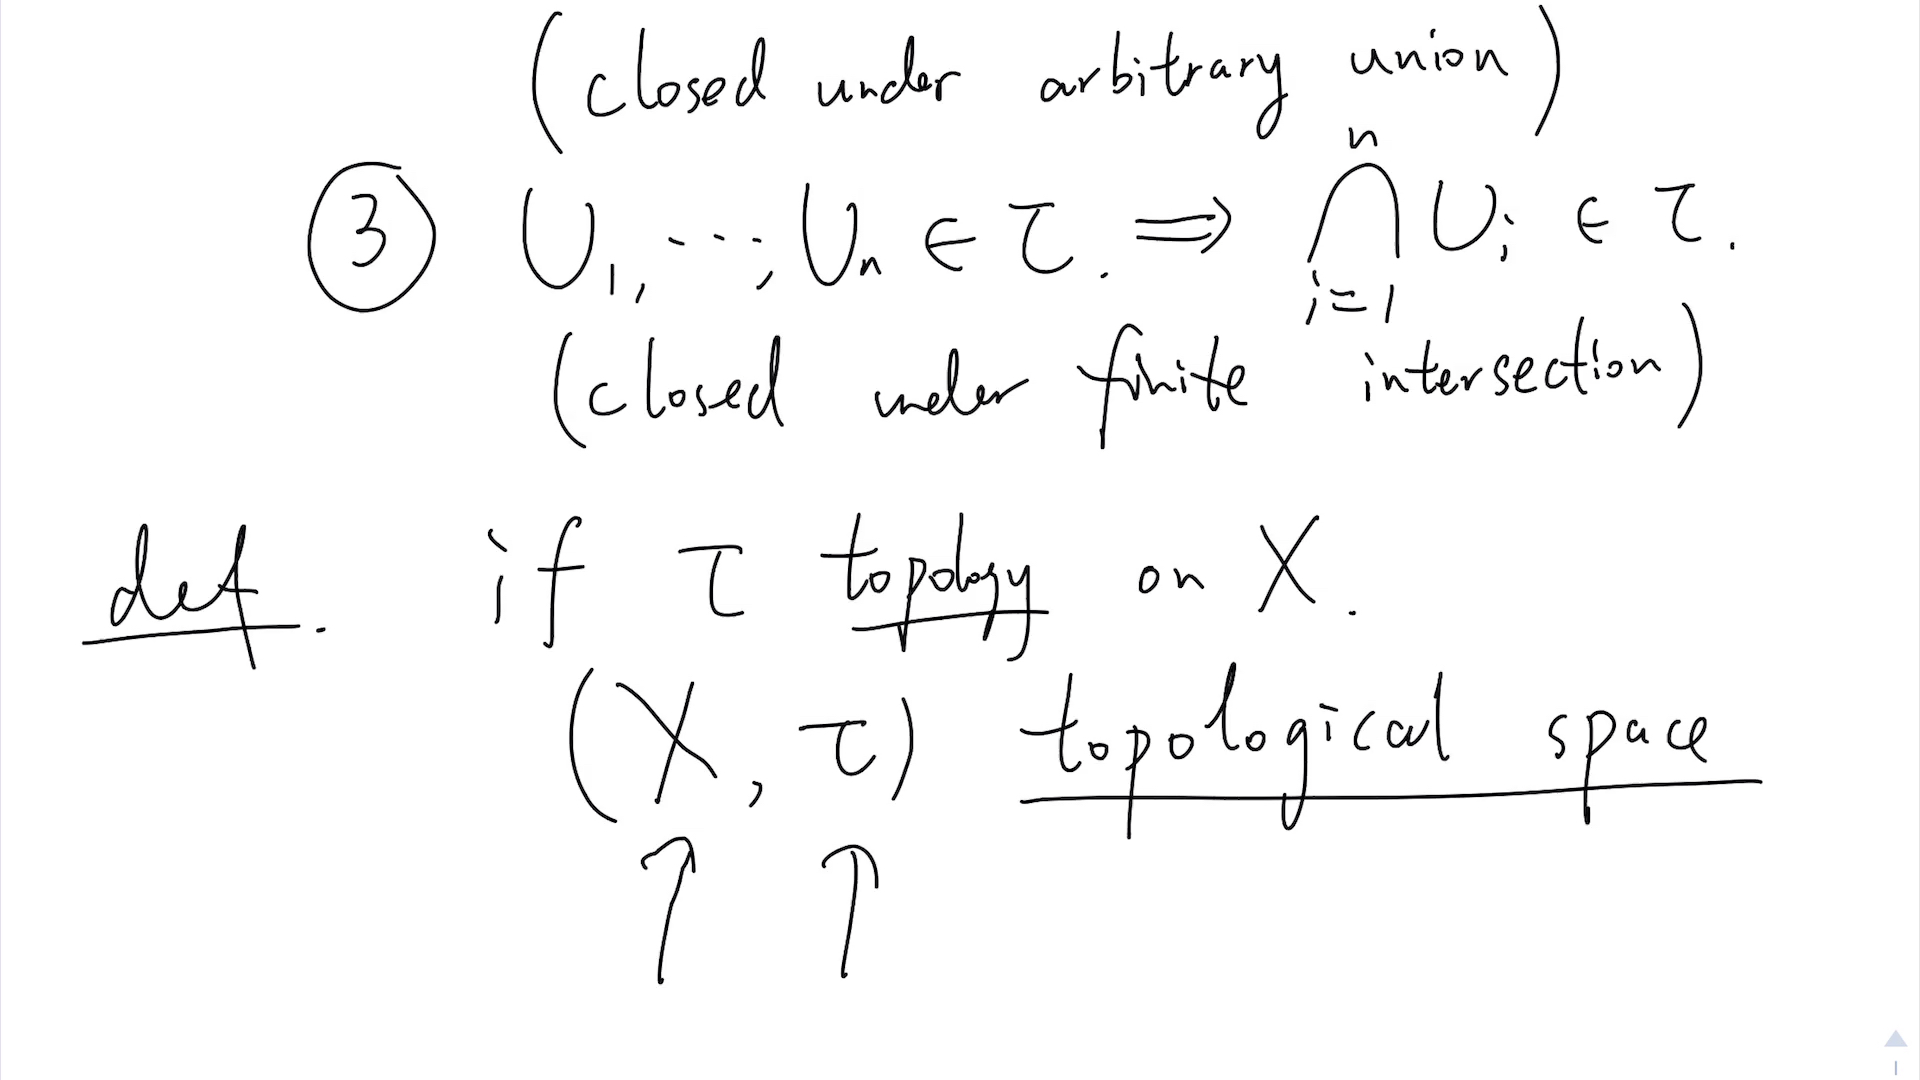 (closed under arbitrary union)
③ U₁, ..., Uₙ ∈ τ. ⟹ ⋂ᵢ₌₁ⁿ Uᵢ ∈ τ.
(closed under finite intersection)
def. if τ topology on X.
(X, τ) topological space
↑ ↑